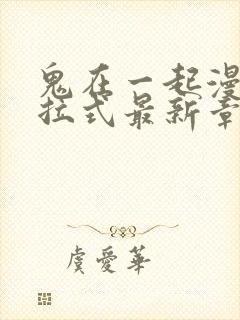 鬼在一起漫
拉式最新章
虞爱華